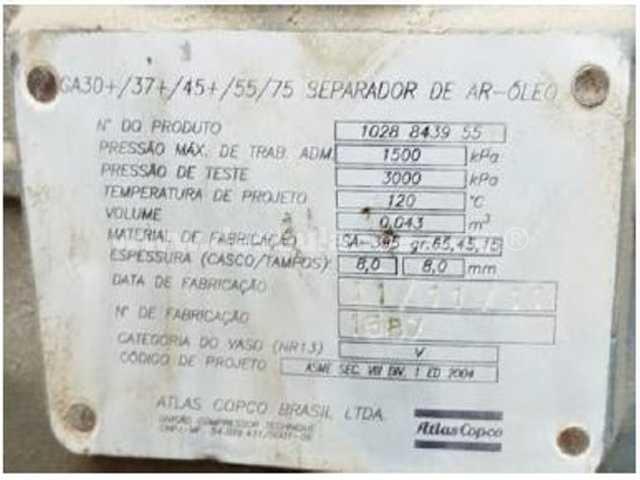 GA30+/37+/45+/55/75 SEPARADOR DE AR-ÓLEO
N° DO PRODUTO 1028 8439 55
PRESSÃO MÁX. DE TRAB. ADM. 1500 kPa
PRESSÃO DE TESTE 3000 kPa
TEMPERATURA DE PROJETO 120 °C
VOLUME 0,043 m³
MATERIAL DE FABRICAÇÃO gr.65,45,15
ESPESSURA (CASCO/TAMPOS) 8,0 8,0 mm
DATA DE FABRICAÇÃO
N° DE FABRICAÇÃO
CATEGORIA DO VASO (NR13) V
CÓDIGO DE PROJETO ASME SEC. VIII DIV. 1 ED 2004
ATLAS COPCO BRASIL LTDA.
DIVISÃO COMPRESSOR TECHNIQUE
Atlas Copco